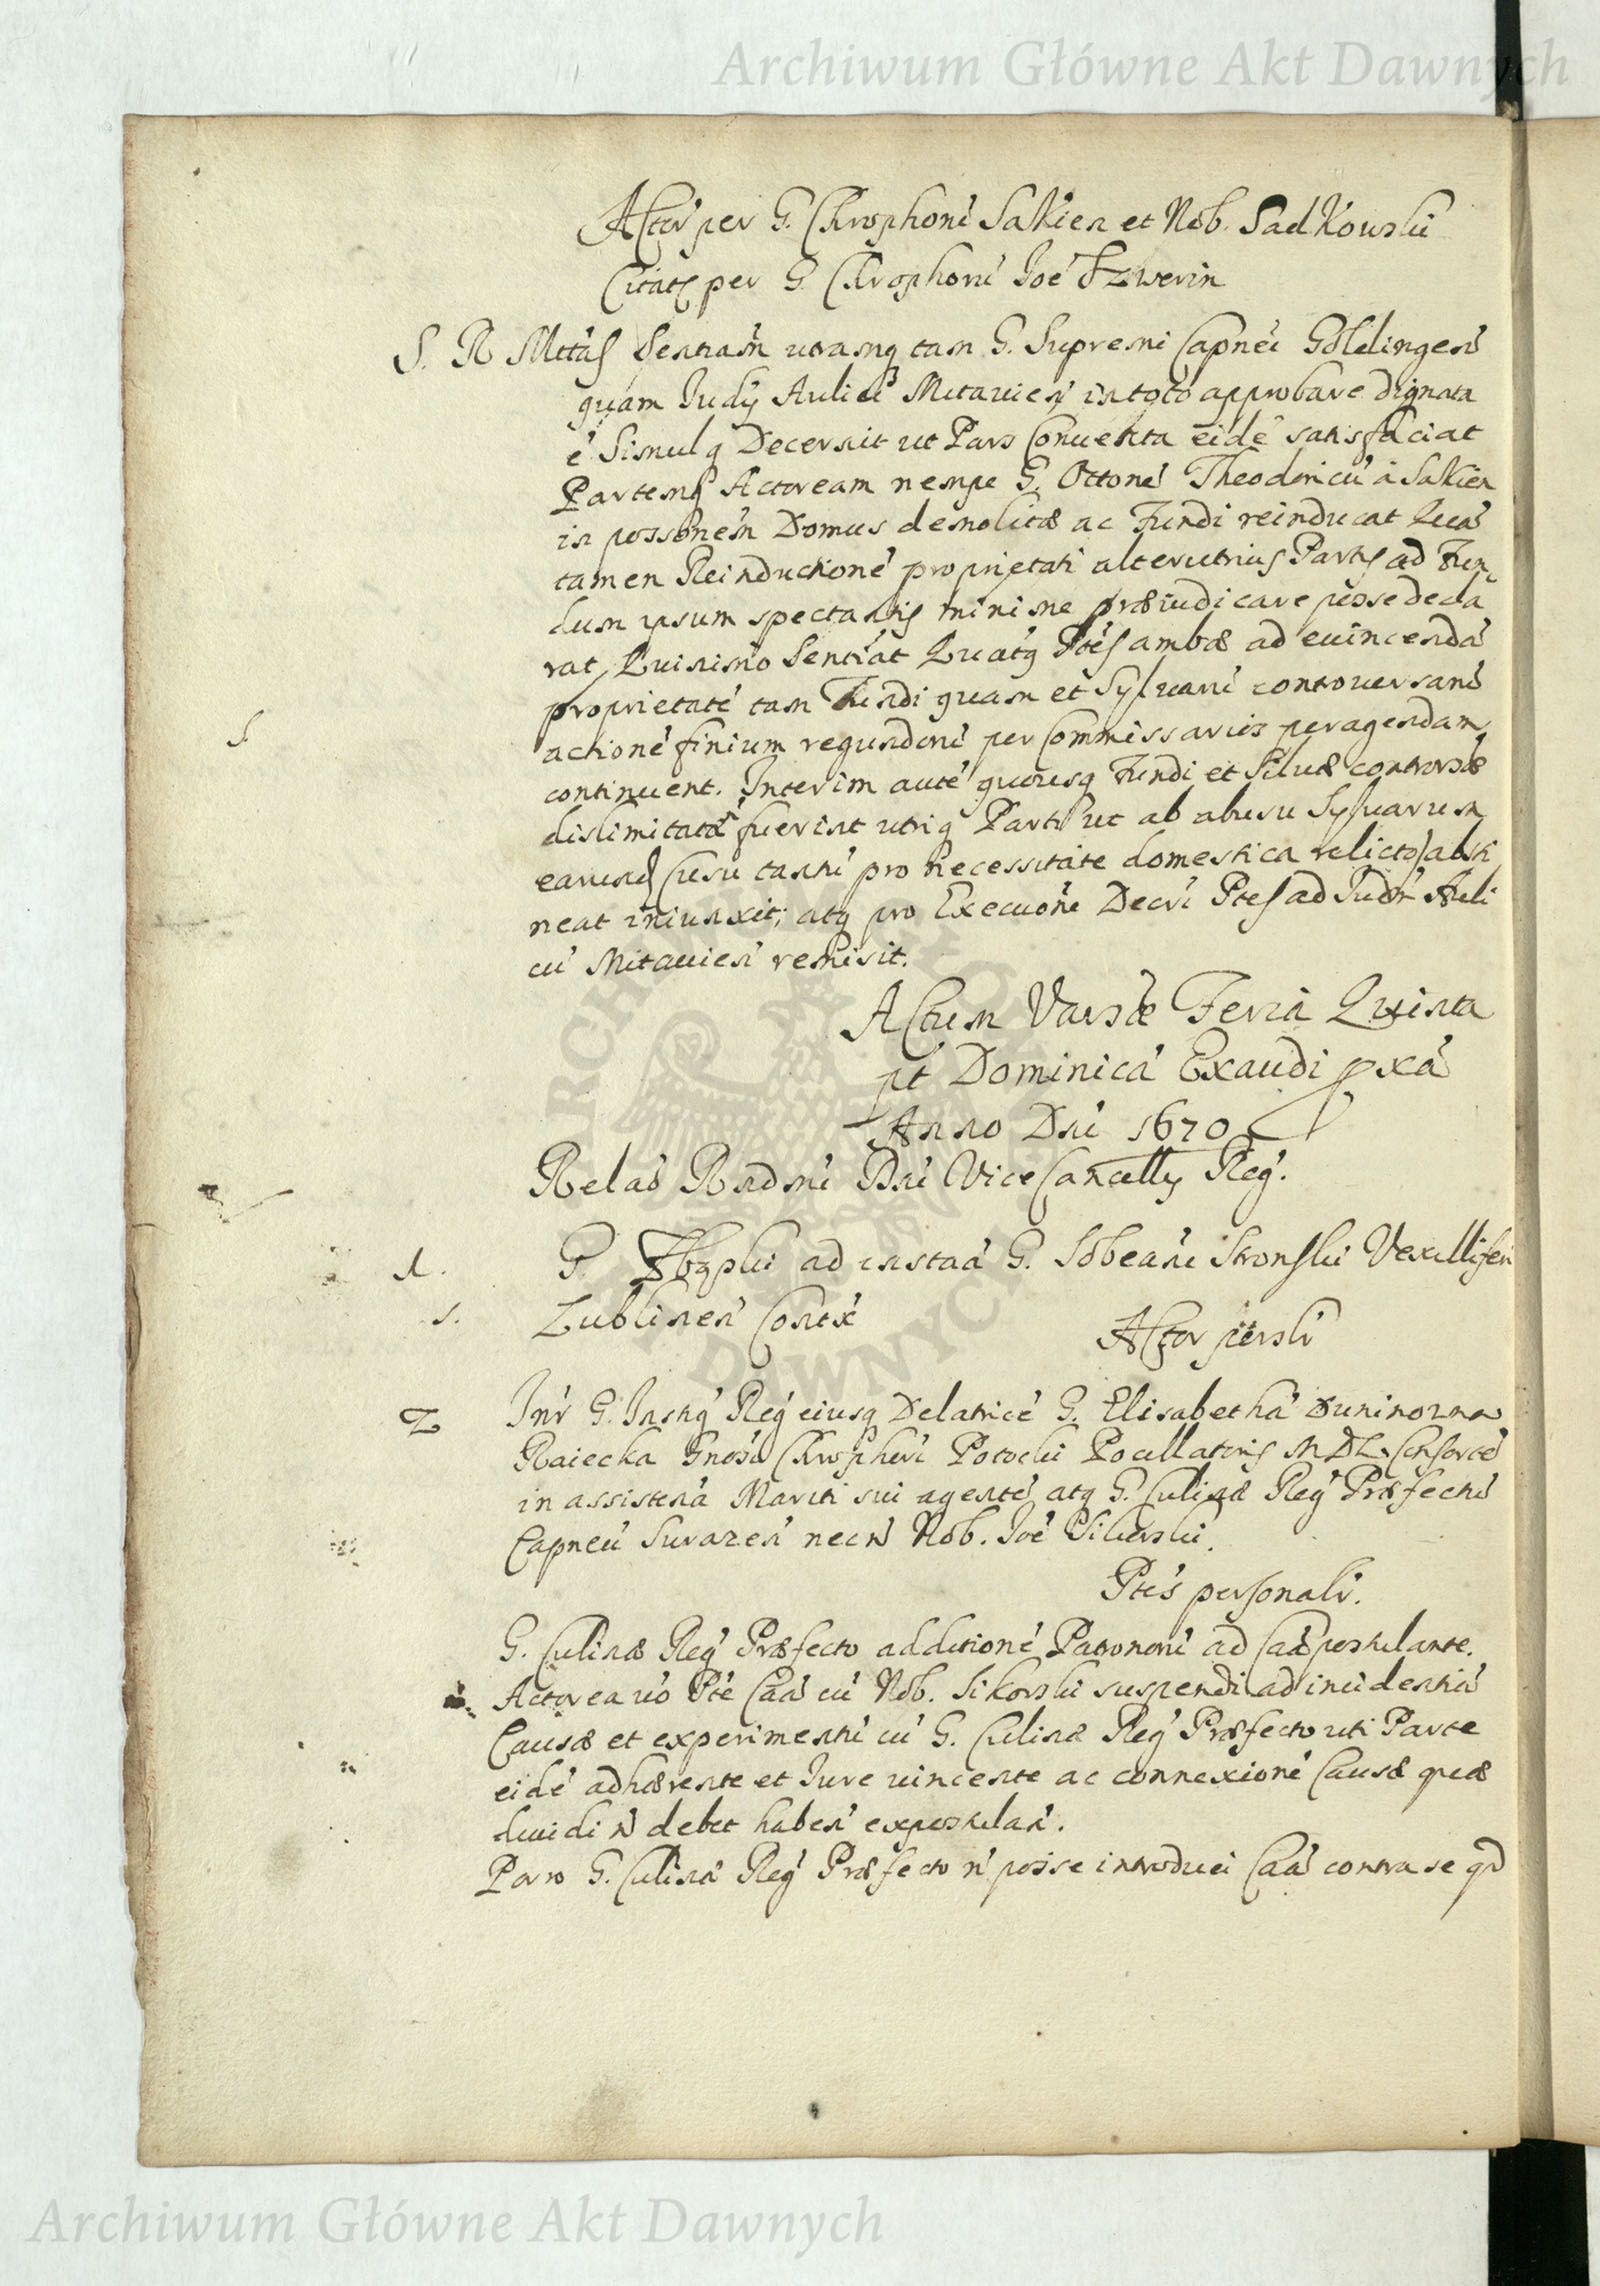 Archiwum Główne Akt Dawnych
Actor per G. Chrophorũ Sakien et Nob. Sadkowski
Citatq per G. Chrophorũ Joẽ Szwerin
S. R Mttas Sentiam utramq tam G. Supremi Capnei Goldingeñ
quam Judÿ Aulici Mitavieñ in toto approbare dignata
ẽ Simulq Decernit ut Pars Conventa eidẽ satisfaciat
Partemq Actoream nempe G. Ottonẽ Theodoricũ à Sakien
in possonem Domus demolitæ ac Fundi reinducat Quã
tamen Reinductionẽ proprietati alterutrius Partis ad Fun
dum ipsum spectantis minime præiudicare posse decla
rat, Quinimo Sentiat Quatq Ptes ambæ ad evincendã
proprietatẽ tam Fundi quam et Sylvarũ controversarũ
actionẽ finium regundorũ per Commissarios peragendam
continuent. Interim autẽ quousq Fundi et Silvæ controvsæ
dislimitatæ fuerint utriq Parti ut ab abusu Sylvarum
earund (usu tantũ pro necessitate domestica relicto) absti
neat iniunxit; atq pro Execuõne Decri Ptes ad Judm Auli
cũ Mitavieñ remisit.
S.
Actum Varsæ Feria Quinta
pt Dominicã Exaudi pxã
Anno Dni 1670
Relaõ Rndmi Dni Vice Cancellÿ Reg.
1. G. ad instaã G. Sobeani Stronski Vexilliferi
s. Lublineñ Contẽ
Actor psnlr
2 Inr G. Instig Reg eiusq Delatricẽ G. Elisabethã Duninowna
Raiecka Gnosi Chrophori Potocki Pocillatoris M D L Consortẽ
in assistenã Mariti sui agentẽ atq G. Culinæ Reg Præfectũ
Capneũ Surazeñ necñ Nob. Joẽ Sikorski.
Ptes personalr.
G. Culinæ Reg Præfecto additionẽ Patronorũ ad Caã postulante.
Actorea vo Pte Caã cũ Nob. Sikorski suspendi ad incidentiã
Causæ et experimentũ cũ G. Culinæ Reg Præfecto uti Parte
eidẽ adhærente et Jure vincente ac connexionẽ Causæ quæ
dividi ñ debet habeñ expostulañ.
Porro G. Culinæ Reg Præfecto ñ posse introduci Caã contra se qd
Archiwum Główne Akt Dawnych